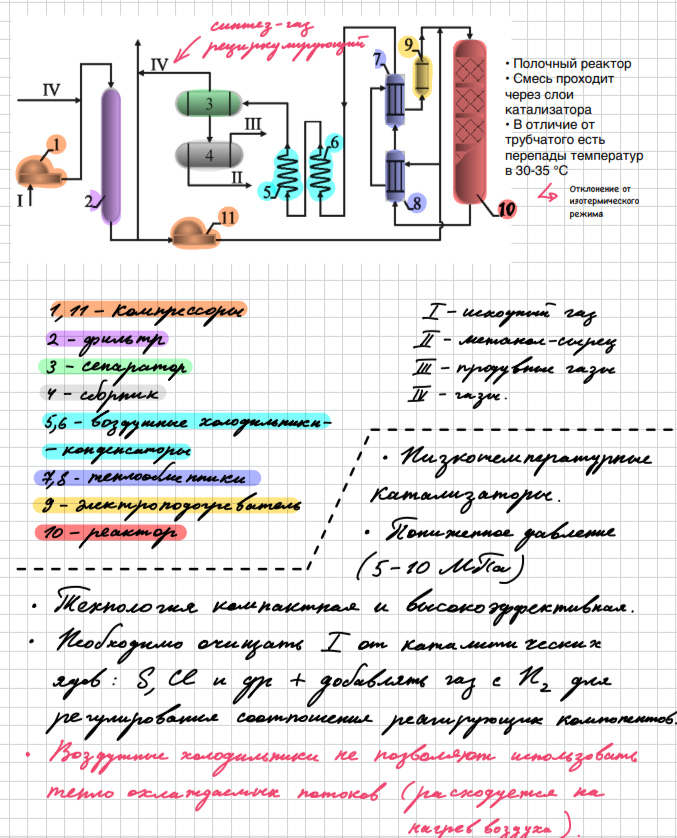 синтез-газ
рециркулирующий
IV
IV
1
I
2
3
4
III
II
5
6
11
7
8
9
10
• Полочный реактор
• Смесь проходит
через слои
катализатора
• В отличие от
трубчатого есть
перепады температур
в 30-35 °C
Отклонение от
изотермического
режима
1, 11 – компрессоры
2 – фильтр
3 – сепаратор
4 – сборник
5,6 – воздушные холодильники-
– конденсаторы
7,8 – теплообменники
9 – электроподогреватель
10 – реактор
I – исходный газ
II – метанол-сырец
III – продувные газы
IV – газы.
• Низкотемпературные
катализаторы.
• Пониженное давление
(5–10 МПа)
• Технология компактная и высокоэффективная.
• Необходимо очищать I от каталитических
ядов: S, Cl и др + добавлять газ с H₂ для
регулирования соотношения реагирующих компонентов.
• Воздушные холодильники не позволяют использовать
тепло охлаждаемых потоков (расходуется на
нагрев воздуха).